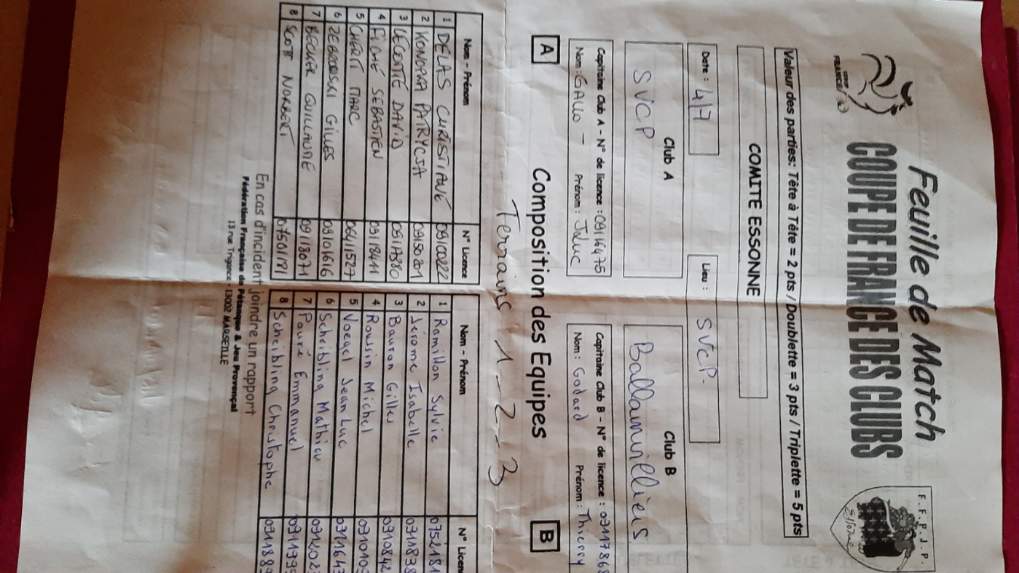 Feuille de Match
COUPE DE FRANCE DES CLUBS
F.F.P.J.P.
Essonne
FRANCE
Valeur des parties: Tête à Tête = 2 pts / Doublette = 3 pts / Triplette = 5 pts
COMITE ESSONNE
Date : 4/7
Lieu : SVCP.
Club A
SVCP
Club B
Ballainvilliers
Capitaine Club A - N° de licence : 09116475
Nom : GALLO - Prénom : JLuc
Capitaine Club B - N° de licence : 0911786
Nom : Godard Prénom : Thierry
A Composition des Equipes B
Terrains 1 - 2 - 3
Nom - Prénom N° Licence
1 DELAS CHRISTIANE
2 KONOPKA PATRYCJA
3 LECONTE DAVID
4 FLOHÉ SEBASTIEN 09118411
5 MARC 06411527
6 ZEGRODSKI GILLES 09101616
7 BECKER GUILLAUME 09113071
8 SCOTT NORBERT 07501181
Nom - Prénom N° Licen
1 Ramillon Sylvie 0752181
2 Jérome Isabelle 0911838
3 Bauron Gilles 0910842
4 Roussin Michel 0910103
5 Voegel Jean Luc
6 Scheibling Mathieu
7 Pouré Emmanuel 0911799
8 Scheibling Christophe 0911889
En cas d'incident joindre un rapport
Fédération Française de Pétanque & Jeu Provençal
13 rue Trigance - 13002 MARSEILLE